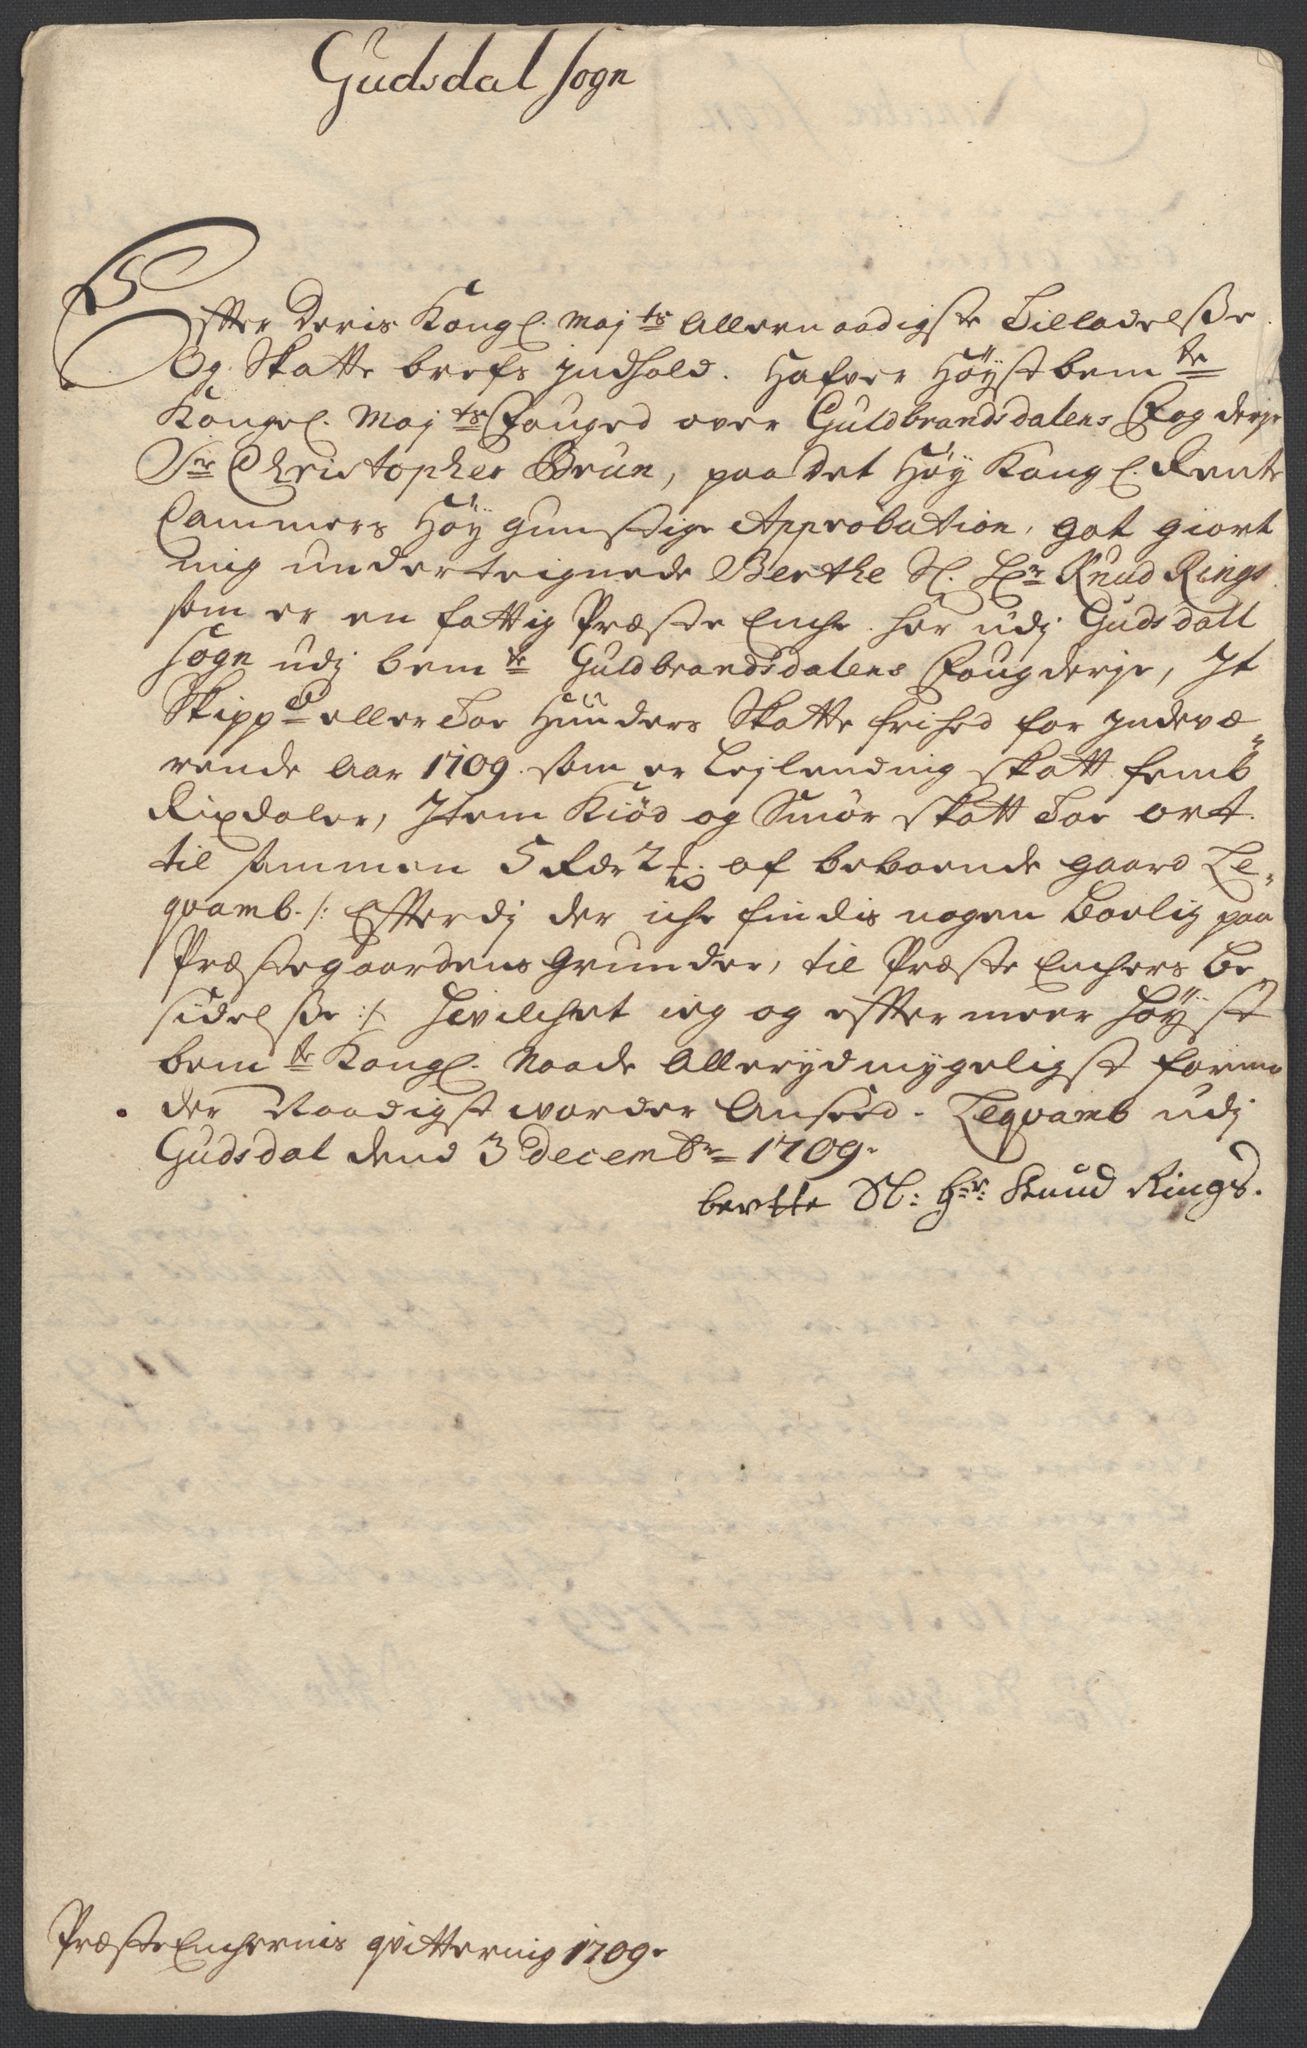 Gudsdal sogn
Effter Deris Kongl. Maj.ts Allernaadigste Tilladelsse
Og Skatte brefs jndhold. Hafver Høystbem.te
Kongel. Maj.ts Fouged over Guldbrandsdalens Fogderje
Sr. Christopher Brun, paa det Høy Kongl. Rente
Cammers Høygunstige Approbation, got giort
mig underteignede Berthe Sl. Hr. Knud Rings
som er en fattig Præste Enche her udj Gudsdall
sogn udj bem.te Guldbrandsdalens Fougderje, Jt
Skipp.d eller Toe Hunders Skatte frihed for jndevæ-
rende Aar 1709. som er Lejlending skatt femb
Rixdaler, Jtem Kiød og Smør skatt Toe ort.
til sammen 5 Rdr 2 ort. af beboende gaard Le-
qvamb. /: Effterdj der iche findis nogen Boelig paa
Præstegaardens Grunder, til Præste Enchers be-
sidelsse :/ Hvilchet ieg og effter meer høyst
bem.te Kongl. Naade Allerydmygeligst formo-
der Naadigst vorder Anseed. Leqvamb udj
Gudsdal dend 3 Decembr. 1709.
berthe Sl: Hr: Knud Rings.
Præste Enchernis qvittering 1709.